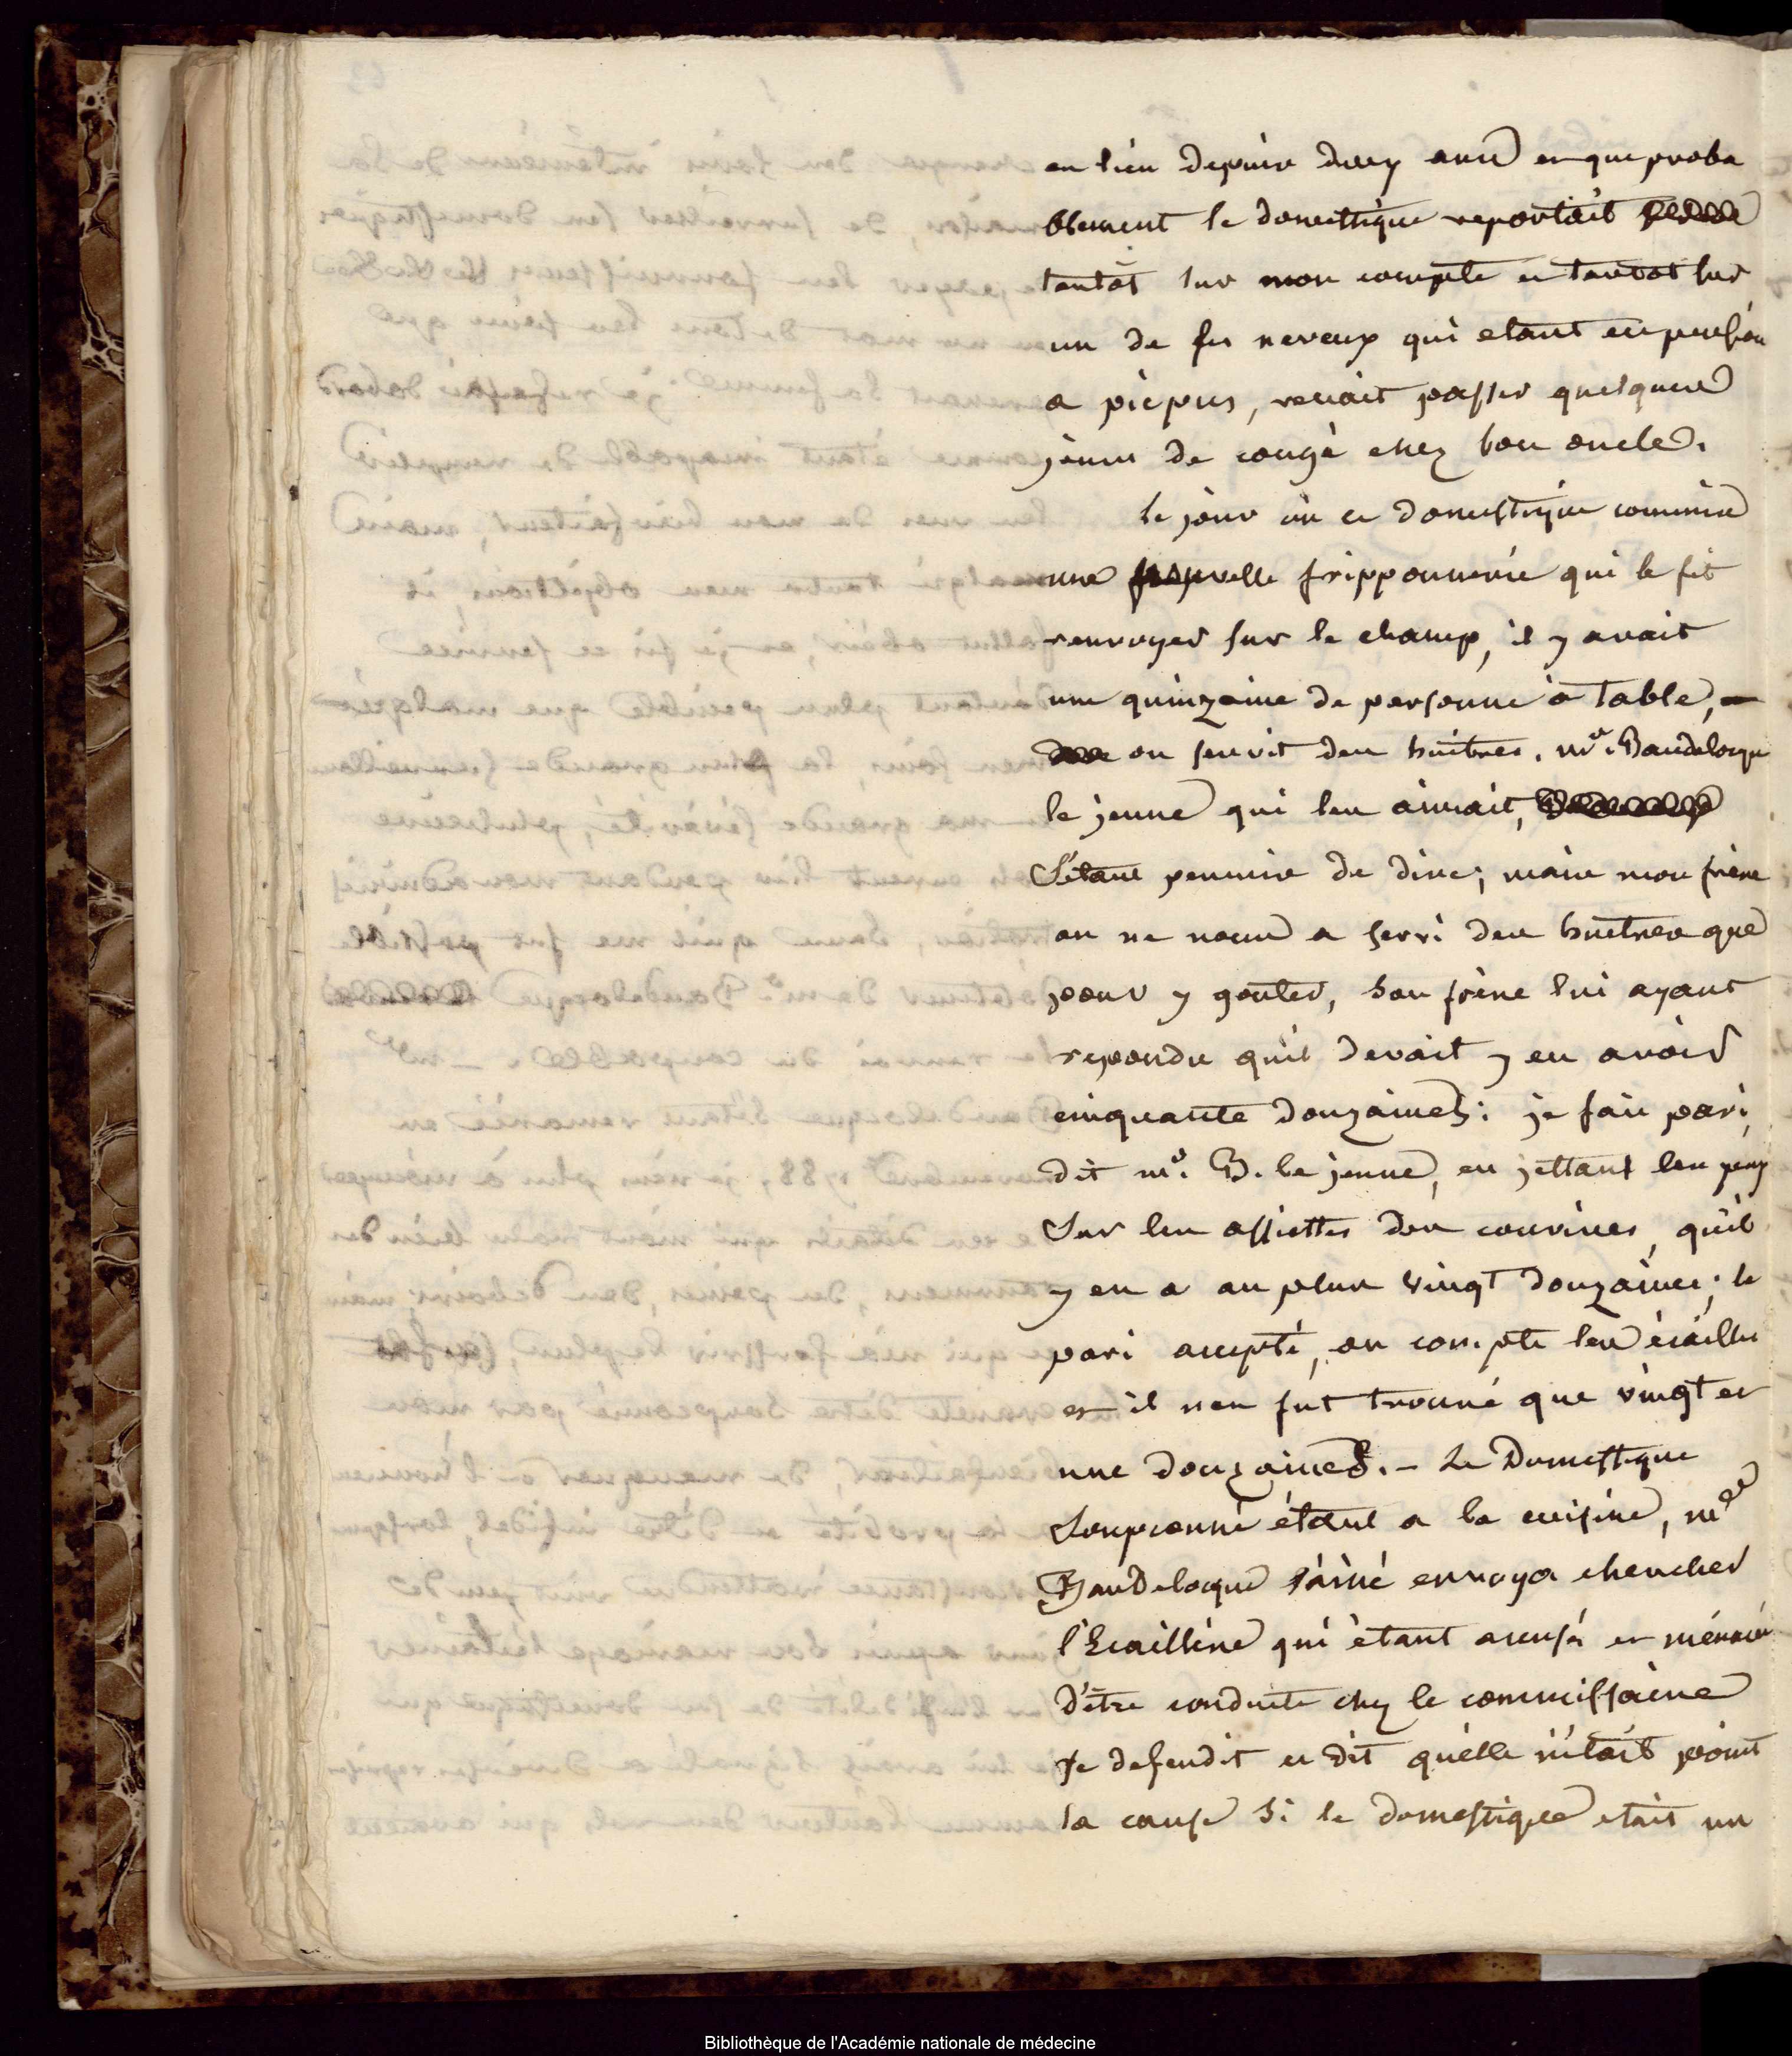 en lieu depuis deux ans et que proba
blement le domestique reportait
tantôt sur mon compte et tantot sur
un de ses neveux qui etant en pension
a picpus, venait passer quelques
jours de congé chez son oncle.
le jour où ce domestique commis
une nouvelle fripponnerie qui le fit
renvoyer sur le champ, il y avait
une quinzaine de personne à table, -
on servit des huitres. mr. Baudelocque
le jeune qui les aimait,
S'étant permis de dire; mais mon frère
on ne nous a servi des huitres que
pour y gouter, son frère lui ayant
repondu qu'il devait y en avoir
cinquante douzaines: je fais pari,
dit mr. B. le jeune, en jettant les yeux
Sur les assiettes des convives, qu'il
y en a au plus vingt douzaines; le
pari accepté, on compte les écailles
et il n'en fut trouvé que vingt et
une douzaines. - Le Domestique
Soupconné étant a la cuisine, mr
Baudelocque l'ainé envoya chercher
l'Ecaillère qui étant accusé et menacé
d'être conduite chez le commissaire
Se defendit et dit qu'elle n'était point
la cause si le domestique etait un
Bibliothèque de l'Académie nationale de médecine